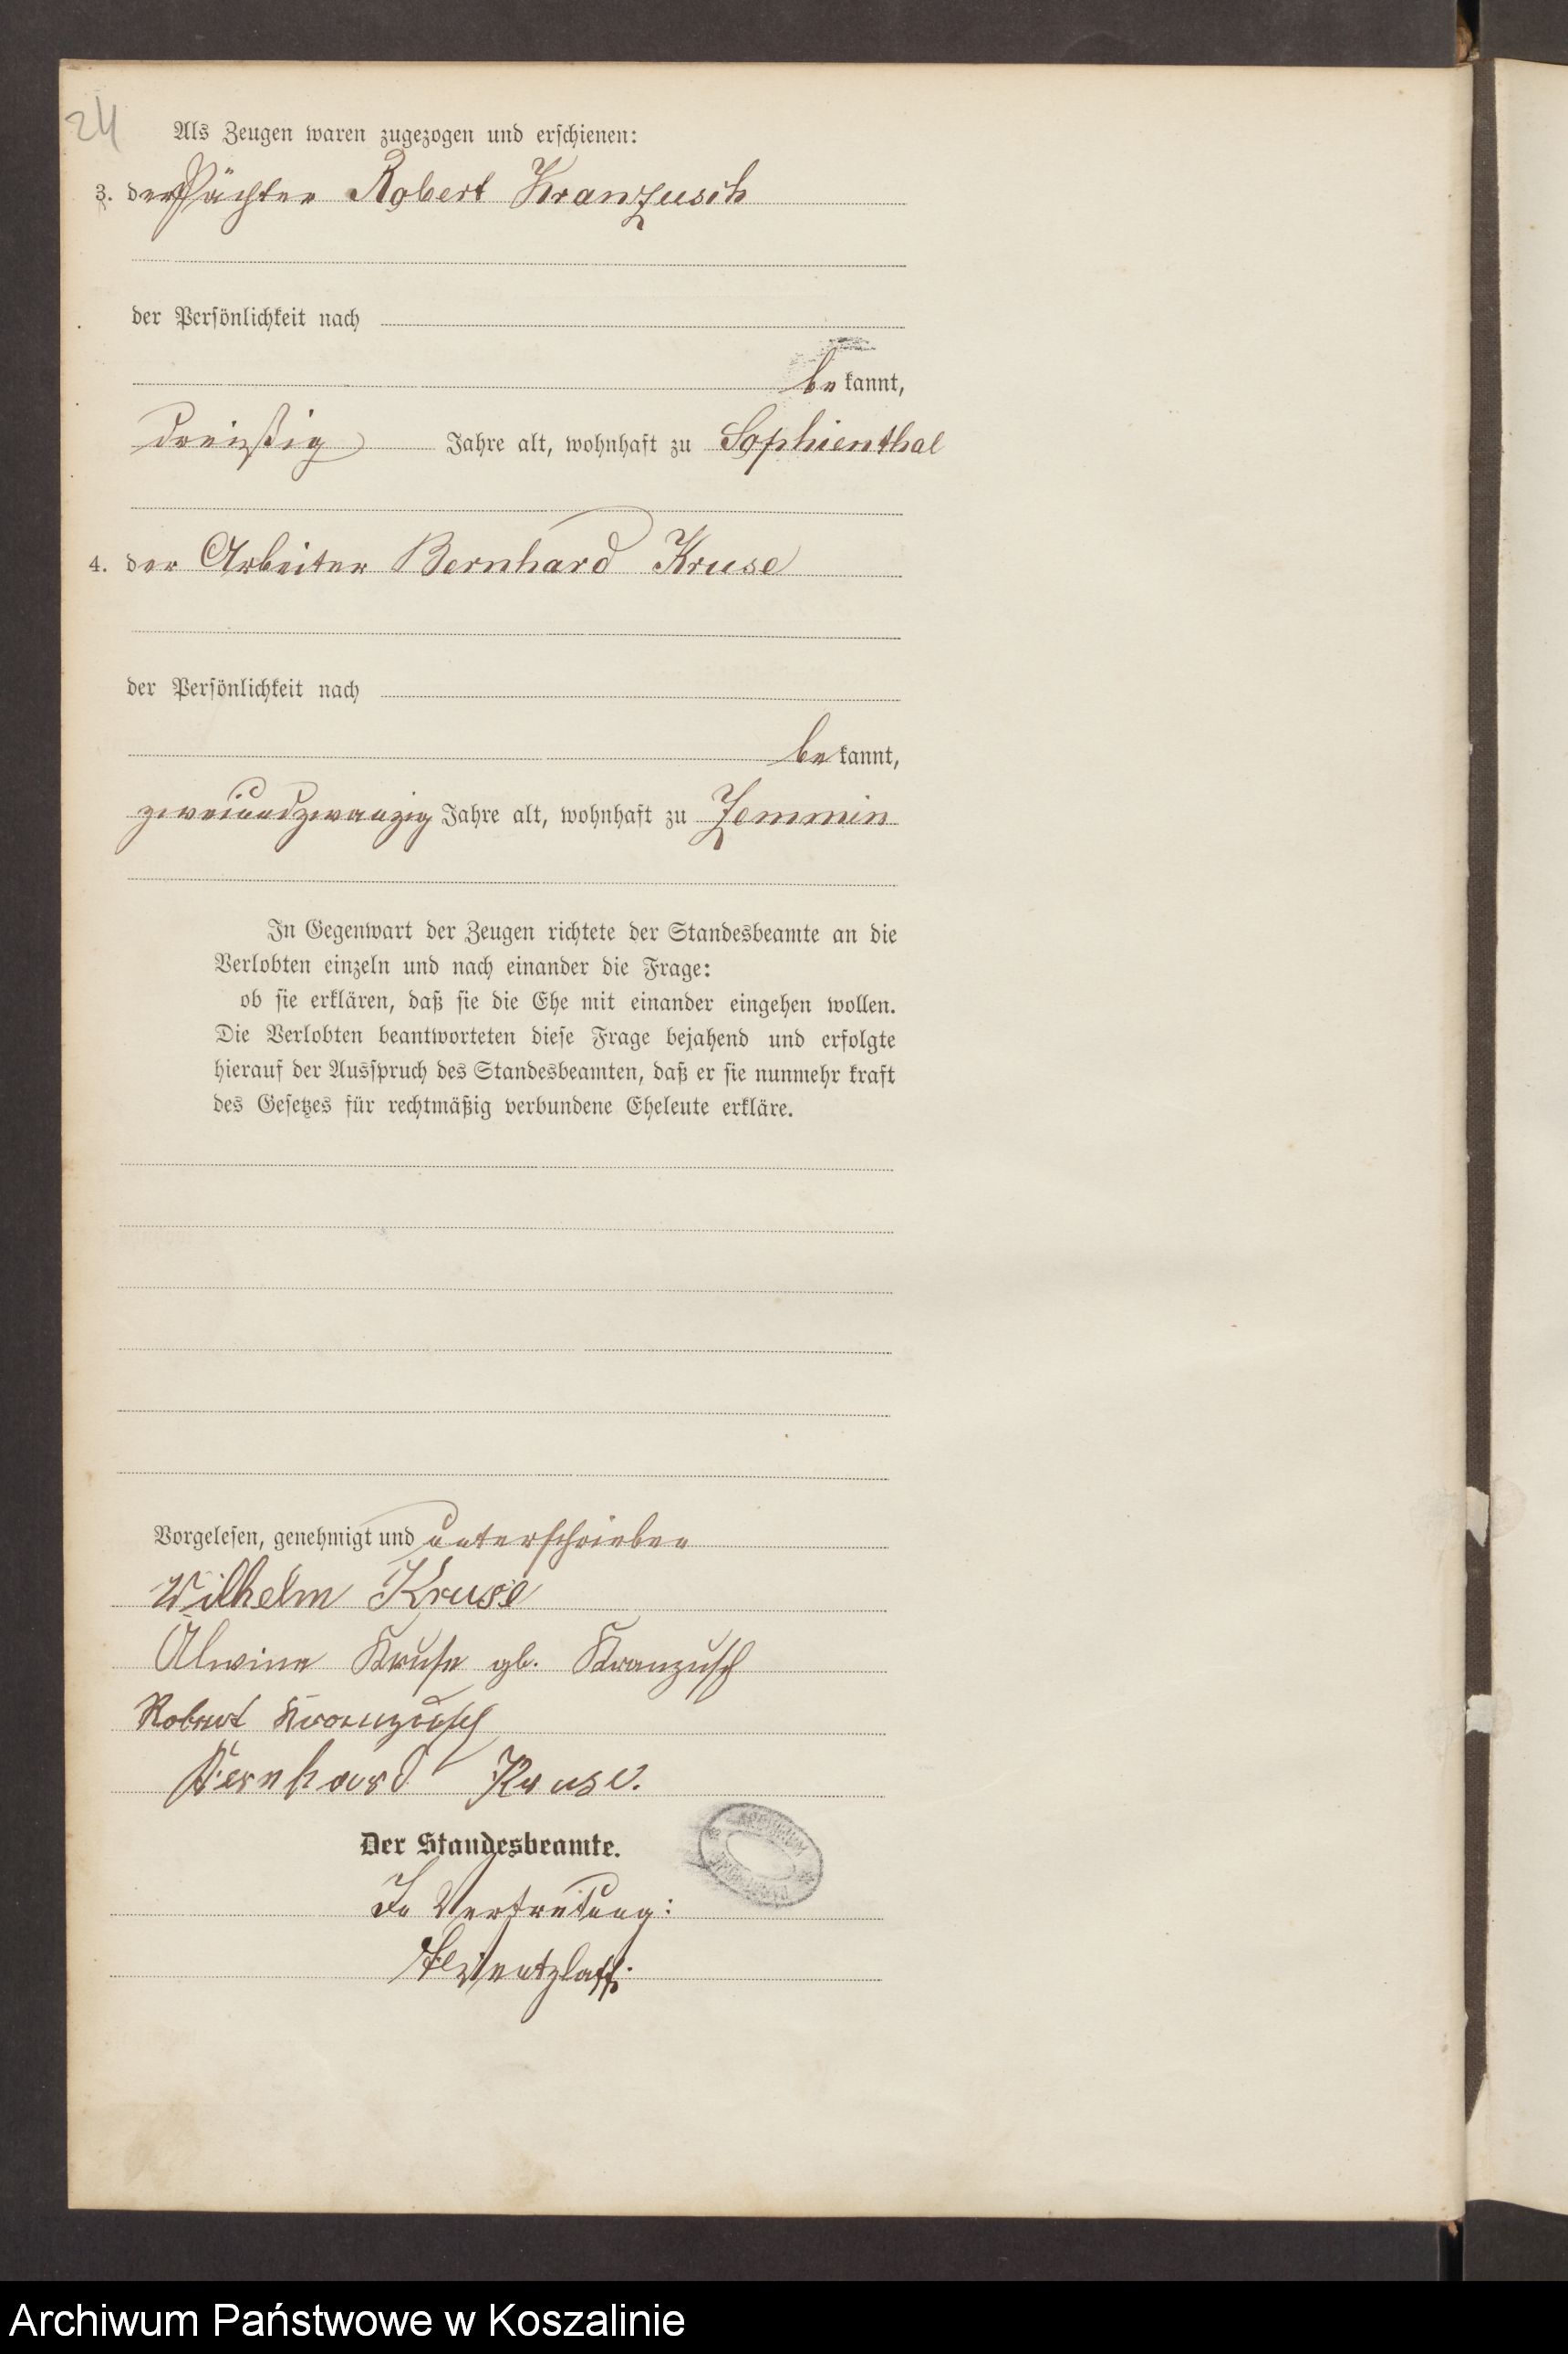 24
Als Zeugen waren zugezogen und erschienen:
3. der Pächter Robert Kranzusch
der Persönlichkeit nach
be kannt,
dreißig Jahre alt, wohnhaft zu Sophienthal
4. der Arbeiter Bernhard Kruse
der Persönlichkeit nach
be kannt,
zweiundzwanzig Jahre alt, wohnhaft zu Zemmin
In Gegenwart der Zeugen richtete der Standesbeamte an die
Verlobten einzeln und nach einander die Frage:
ob sie erklären, daß sie die Ehe mit einander eingehen wollen.
Die Verlobten beantworteten diese Frage bejahend und erfolgte
hierauf der Ausspruch des Standesbeamten, daß er sie nunmehr kraft
des Gesetzes für rechtmäßig verbundene Eheleute erkläre.
Vorgelesen, genehmigt und unterschrieben
Wilhelm Kruse
Alwine Kruse gb. Kranzusch
Robert Kranzusch
Bernhard Kruse.
Der Standesbeamte.
In Vertretung:
Archiwum Państwowe w Koszalinie